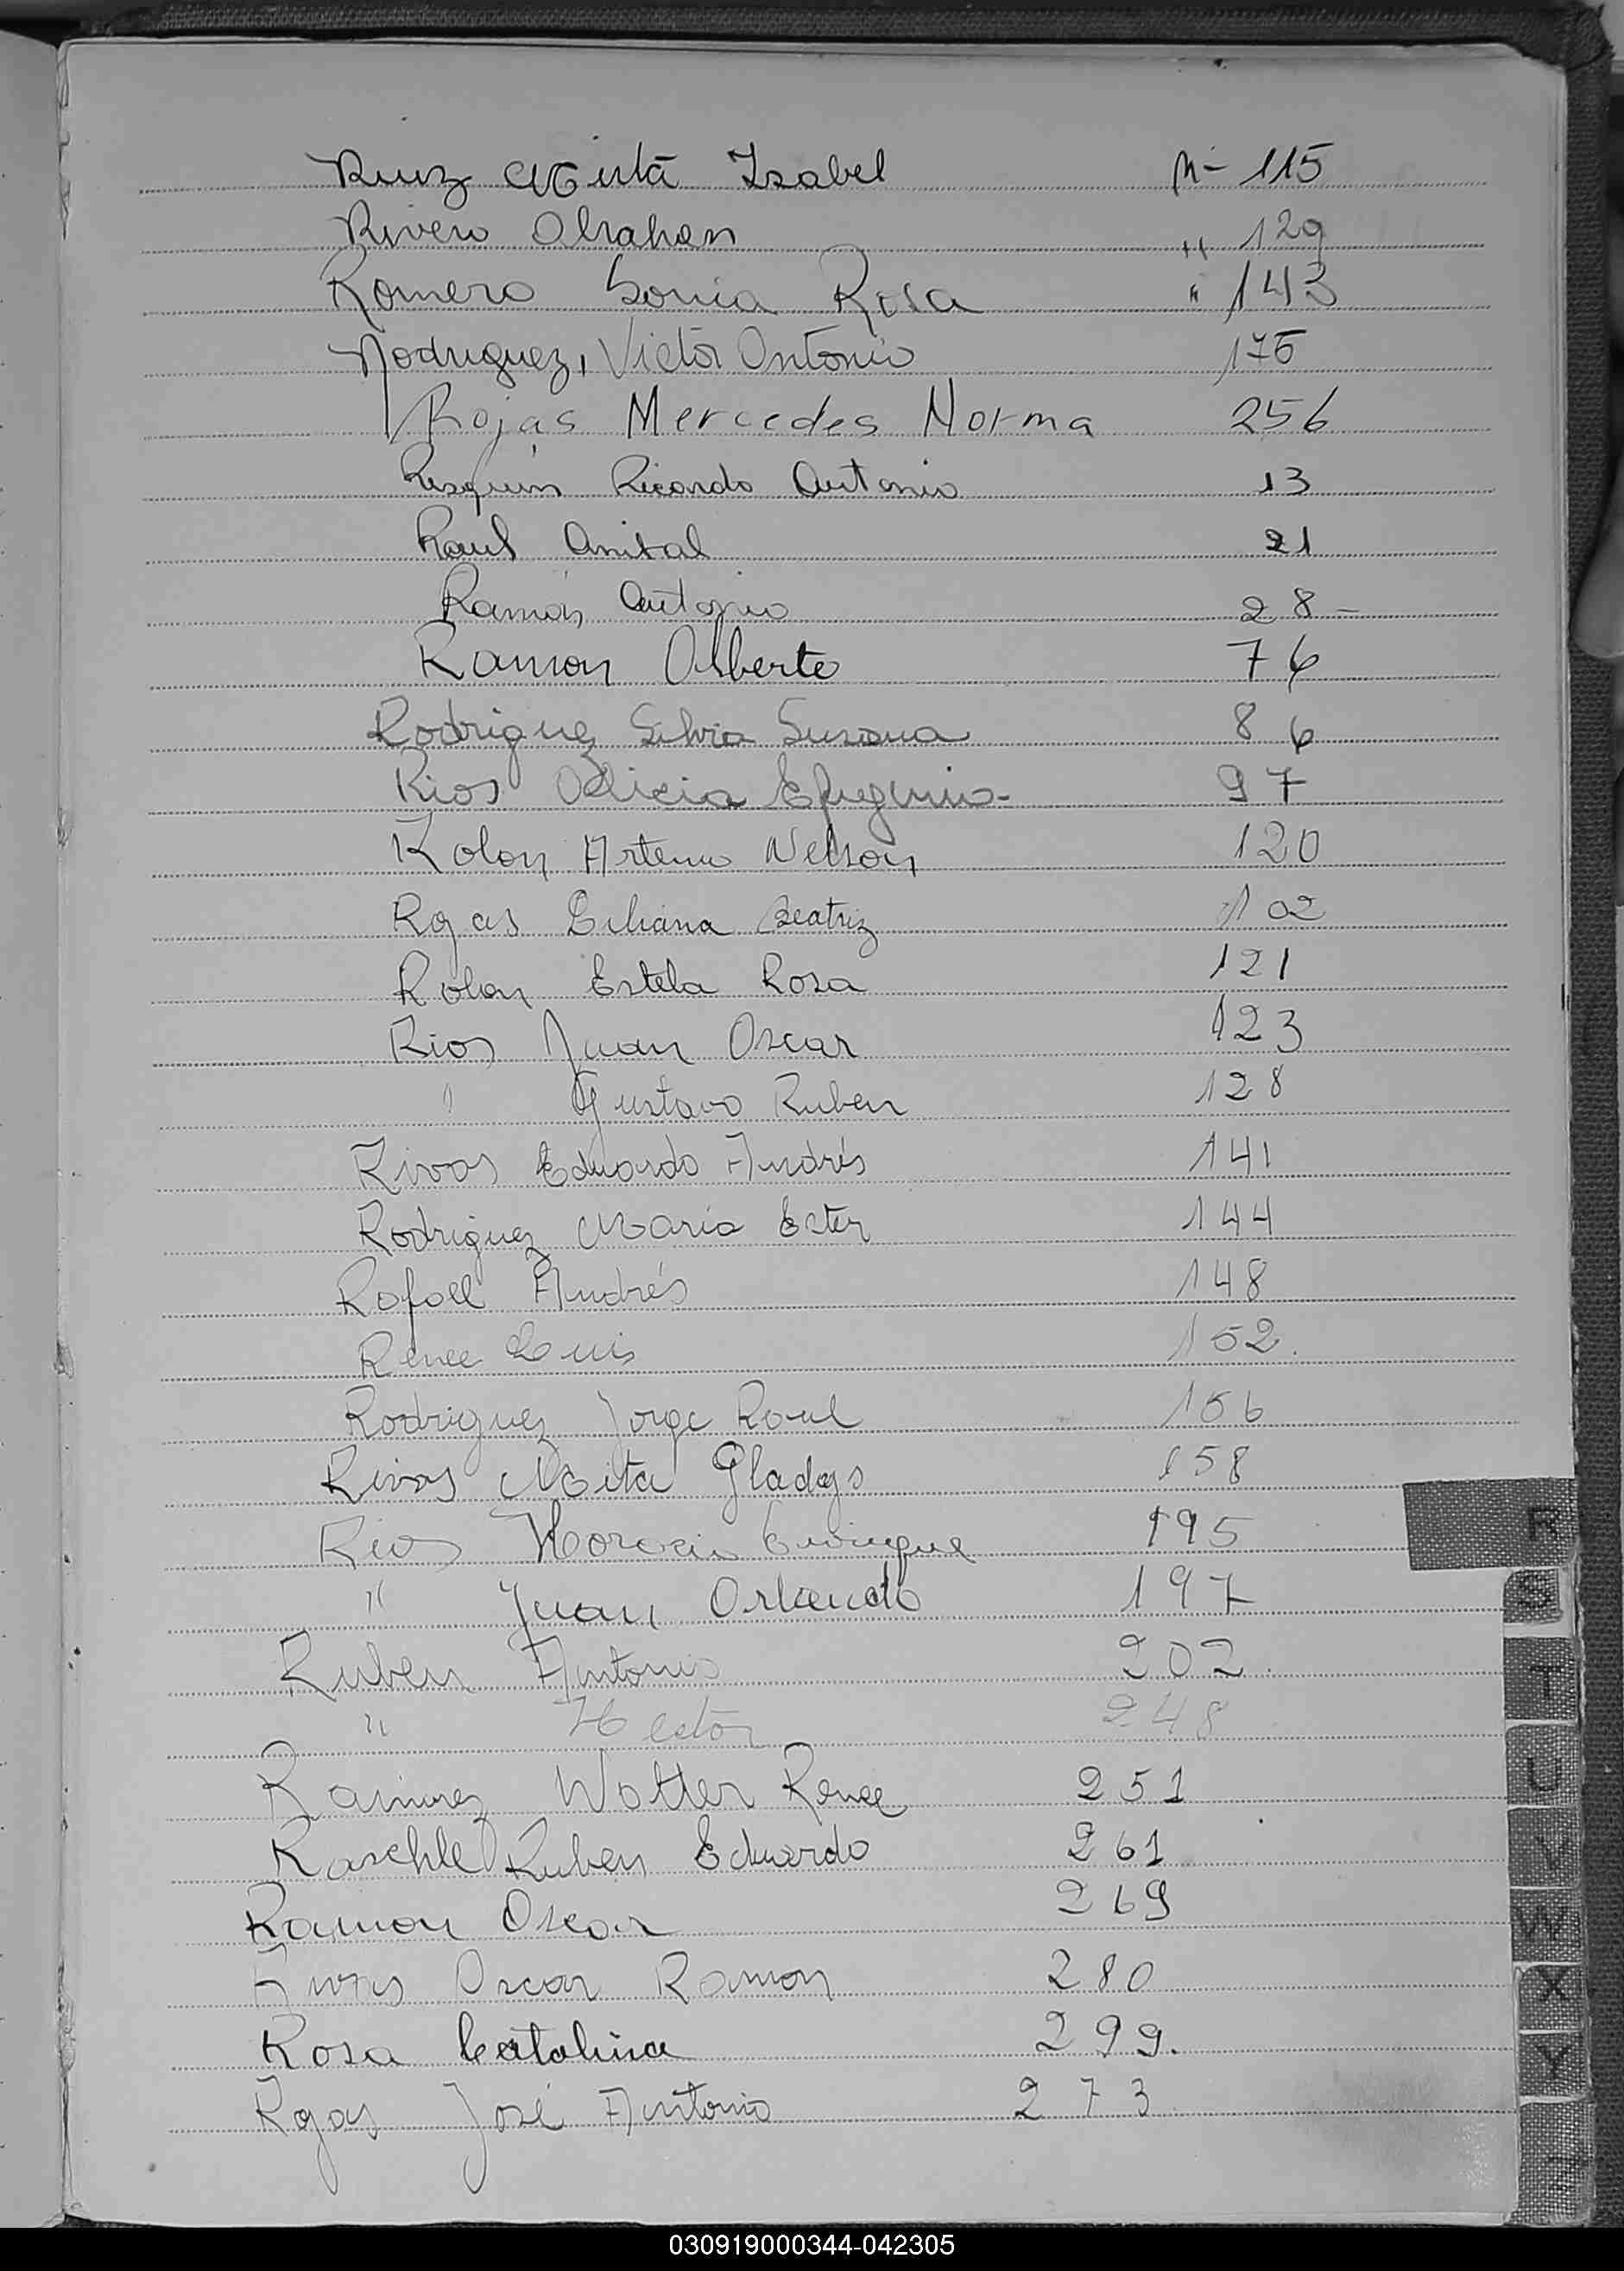 Ruiz Mirta Isabel N- 115
Rivero Abrahan " 129
Romero Sonia Rosa " 143
Rodriguez, Victor Antonio 175
Rojas Mercedes Norma 256
Resquin Ricardo Antonio 13
Raul Anibal 21
Ramón Antonio 28-
Ramon Alberto 76
Rodriguez Silvia Susana 86
Rios Alicia 97
Rolon Artemio Nelson 120
Rojas Liliana Beatriz 102
Rolon Estela Rosa 121
Rios Juan Oscar 123
" Gustavo Ruben 128
Rivas Eduardo Andrés 141
Rodriguez Maria Ester 144
Rafael Andrés 148
Renee Luis 152.
Rodriguez Jorge Raul 156
Rivas Mirta Gladys 158
Rios Horacio Enrique 195
" Juan Orlando 197
Ruben Antonio 202.
" Hector 248
Ramirez Walter Renee 251
Raschle Ruben Eduardo 261
Ramon Oscar 269
Rivas Oscar Ramon 280
Rosa Catalina 299.
Rojas José Antonio 273
R
S
T
U
V
W
X
Y
Z
030919000344-042305